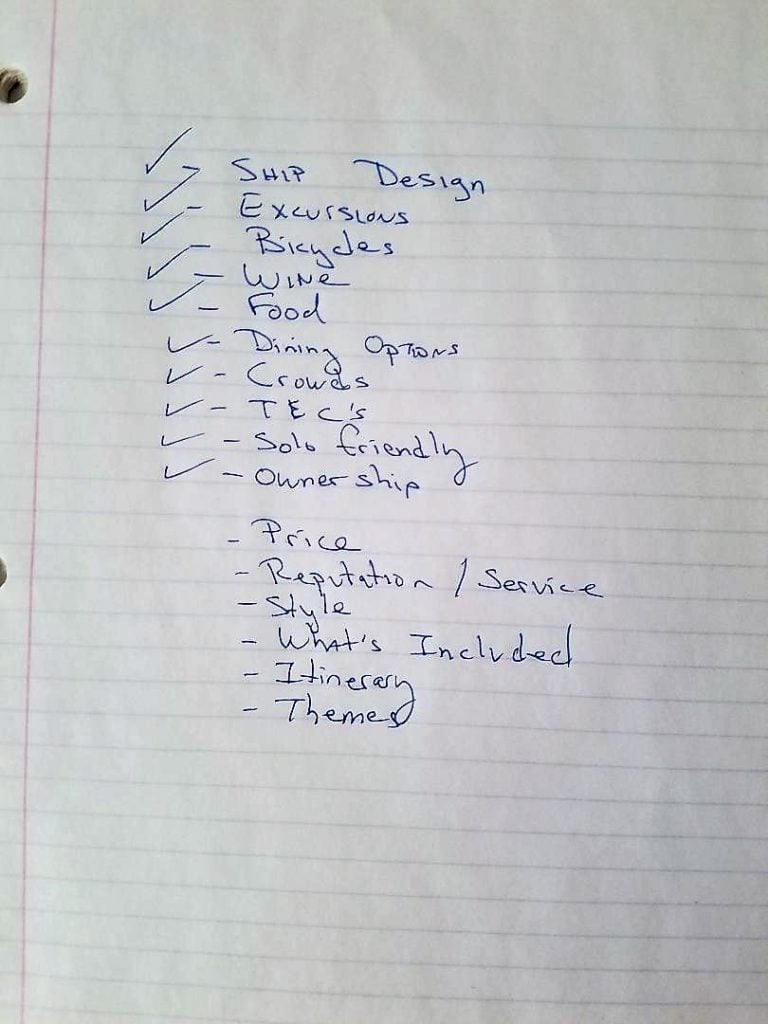 ✓ - Ship Design
✓ - Excursions
✓ - Bicycles
✓ - Wine
✓ - Food
✓ - Dining Options
✓ - Crowds
✓ - TEC's
✓ - Solo friendly
✓ - Ownership
- Price
- Reputation / Service
- Style
- What's Included
- Itinerary
- Themes